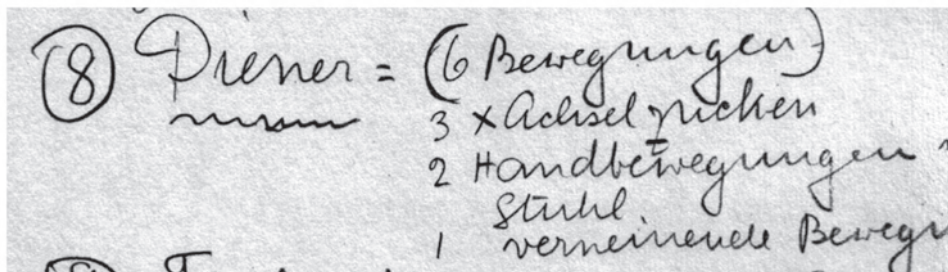 ⑧ Diener = (6 Bewegungen)
3 x Achselzucken
2 Handbewegungen
Stuhl.
1 verneinende